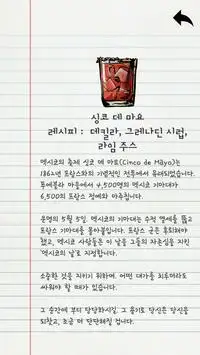 싱코 데 마요
레시피 : 데킬라, 그레나딘 시럽,
라임 주스
멕시코의 축제 싱코 데 마요(Cinco de Mayo)는
1862년 프랑스와의 기념적인 전투에서 유래되었습니다.
푸에블라 마을에서 4,500명의 멕시코 기마대가
6,500의 프랑스 정예와 마주칩니다.
운명의 5월 5일, 멕시코의 기마대는 수적 열세를 뚫고
프랑스 기마대를 몰아붙입니다. 프랑스 군은 후퇴해야
했고, 멕시코 사람들은 이 날을 그들의 자존심을 지킨
'멕시코의 날'로 지정합니다.
소중한 것을 지키기 위하여, 어떤 대가를 치루더라도
싸워야 할 때가 있습니다.
그 순간에 부디 당당하시길. 그 용기로 당신은 당신을
되찾고, 조금 더 단단해질 겁니다.